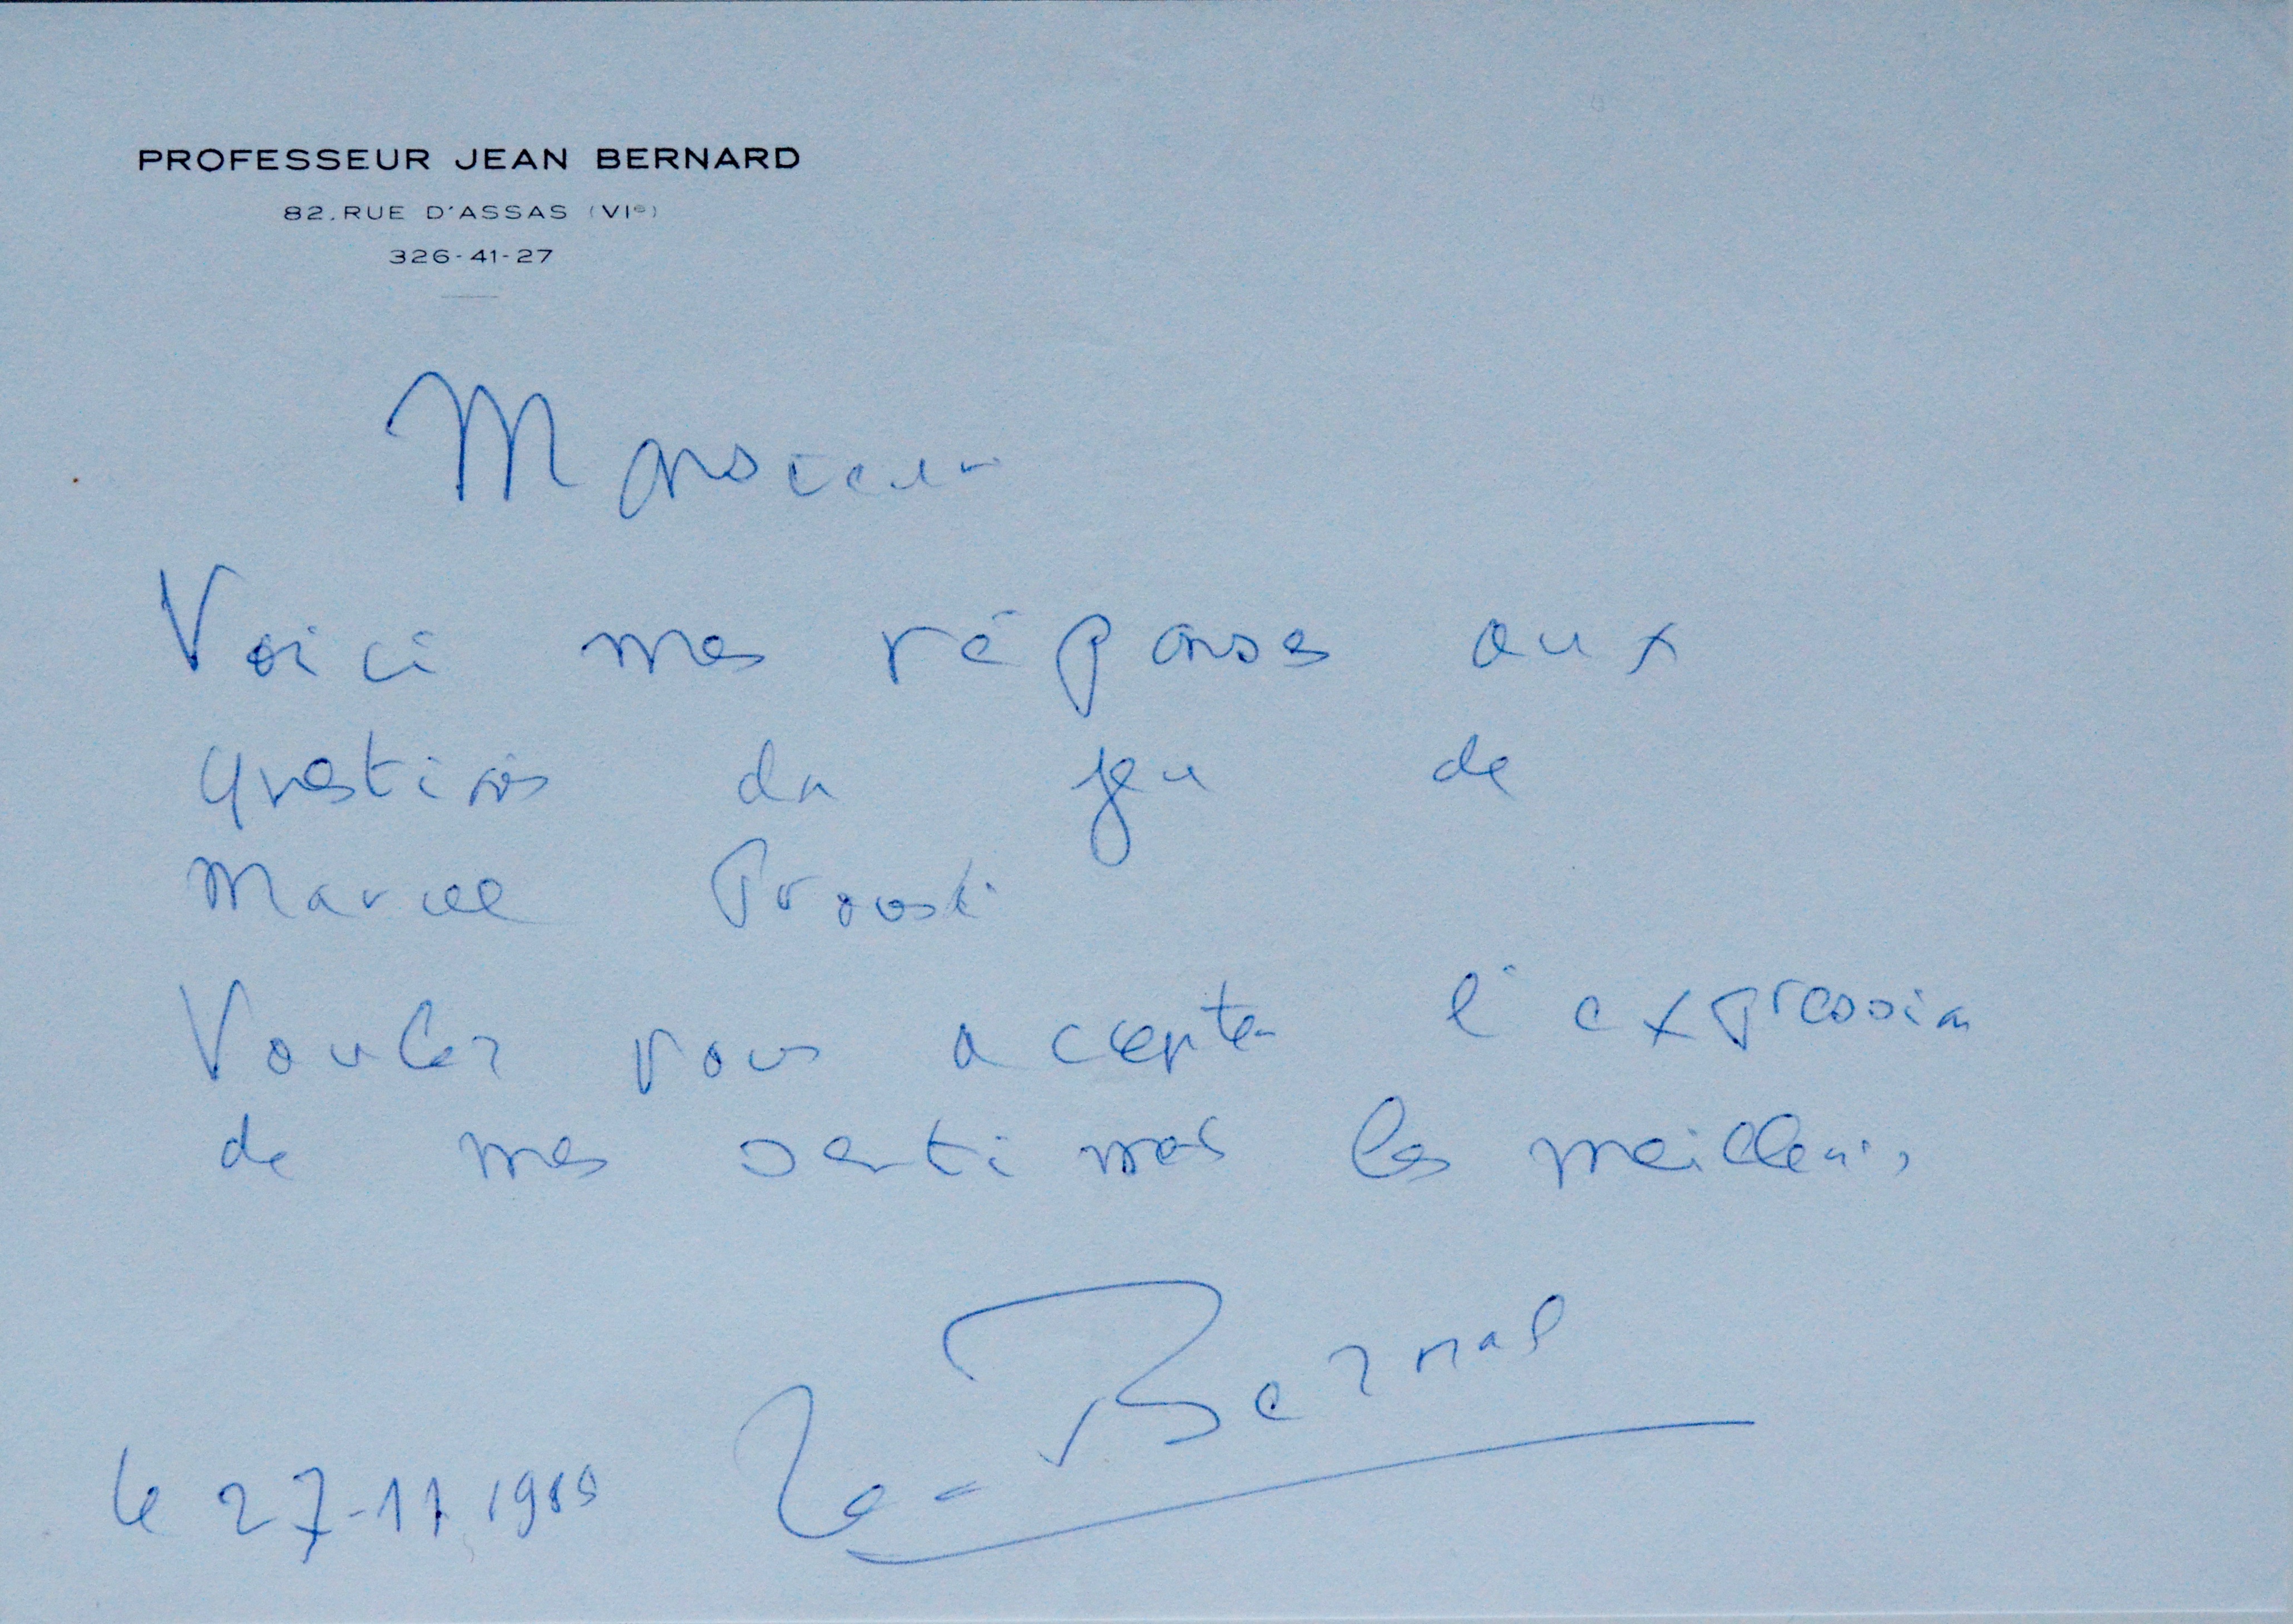 PROFESSEUR JEAN BERNARD
82. RUE D'ASSAS (VIe)
326-41-27
Monsieur
Voici mes réponses aux
questions du jeu de
Marcel Proust.
Voulez vous accepter l'expression
de mes sentiments les meilleurs,
Jean Bernard
le 27-11 1989